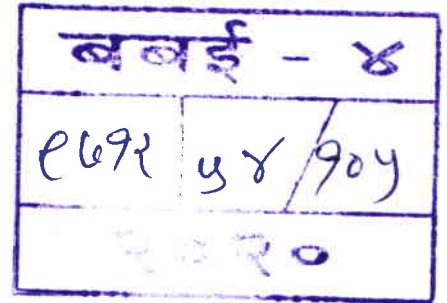 बबई - ४
९७१२ ५४ / १०५
२०२०